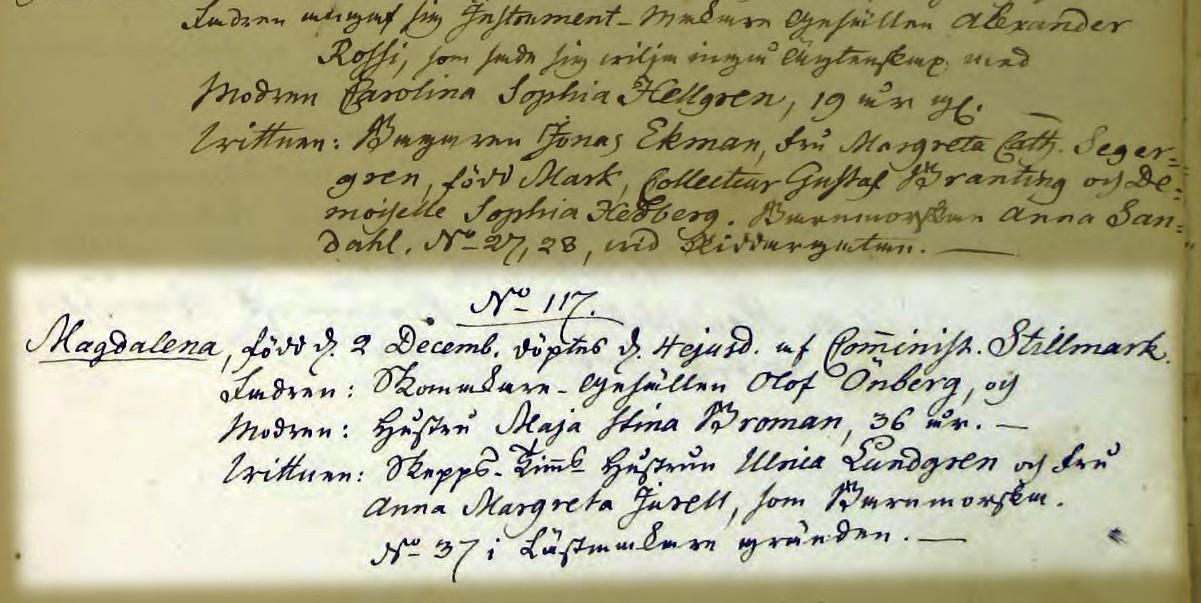 Fadren angaf sig Instrument-Makare Gesällen Alexander
Rossi, som sade sig vilja ingå Ägtenskap med
Modren Carolina Sophia Hellgren, 19 år gl. —
Vittnen: Bagaren Jonas Ekman, Fru Margreta Cath. Seger-
gren, född Mark, Collecteur Gustaf Branting och De-
moiselle Sophia Hedberg. Barnmorskan Anna San-
dahl. No 27, 28, vid Riddaregatan. —
No 117.
Magdalena, född d. 2 Decemb. döptes d. 4 ejusd. af Com̄inist. Stillmark.
Fadren: Skomakare-Gesällen Olof Önberg, och
Modren: Hustru Maja Stina Broman, 36 år. —
Vittnen: Skepps-Tim̄s Hustrun Ulrica Lundgren och Fru
Anna Margreta Jurell, som Barnmorska.
No 37 i Lästmakare gränden. —